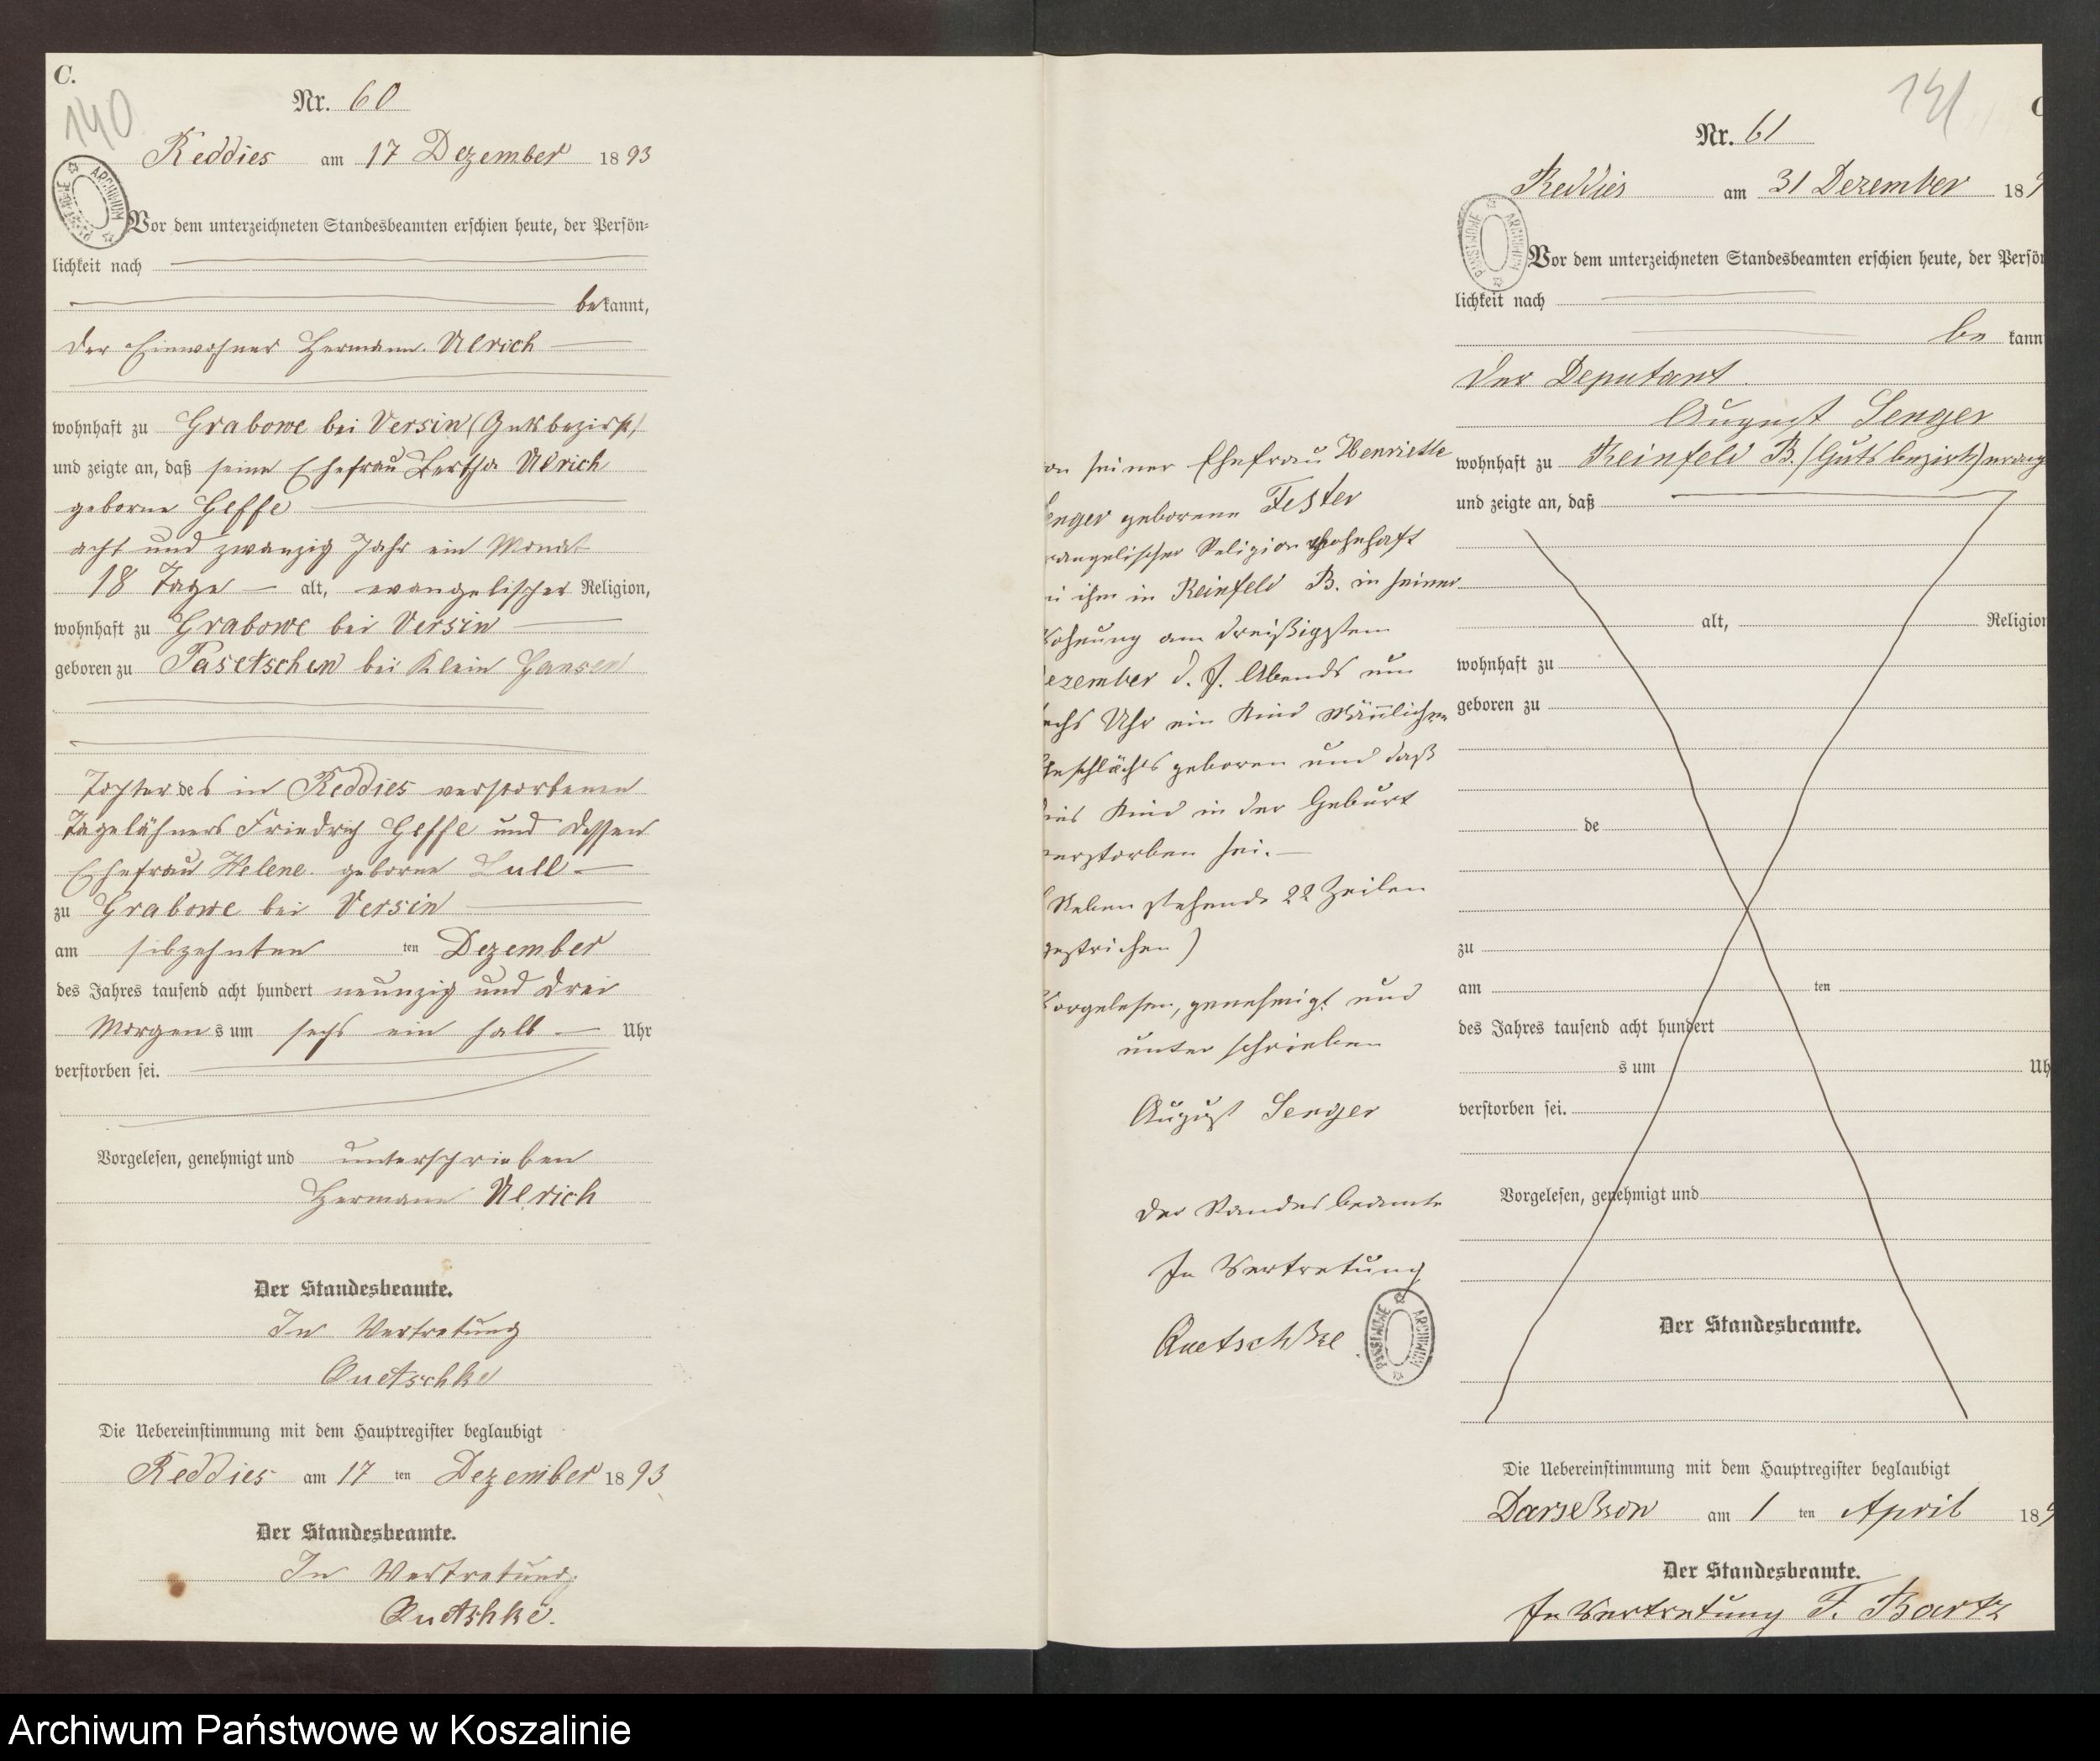 C.
140
Nr. 60
Reddies am 17 Dezember 1893
ARCHIWUM PAŃSTWOWE
Vor dem unterzeichneten Standesbeamten erschien heute, der Persön-
lichkeit nach
bekannt,
der Einwohner Hermann Ulrich
wohnhaft zu Grabowe bei Versin (Gutsbezirk)
und zeigte an, daß seine Ehefrau Bertha Ulrich
geborne
acht und zwanzig Jahr ein Monat
18 Tage alt, evangelischer Religion,
wohnhaft zu Grabowe bei Versin
geboren zu Pasetschen bei Klein Gansen
Tochter des in Reddies verstorbenen
Tagelöhners Friedrich und dessen
Ehefrau Helene geborne Lull
zu Grabowe bei Versin
am sibzehnten ten Dezember
des Jahres tausend acht hundert neunzig und drei
Morgens um sechs ein halb Uhr
verstorben sei.
Vorgelesen, genehmigt und unterschrieben
Hermann Ulrich
Der Standesbeamte.
In Vertretung
Quetschke
Die Uebereinstimmung mit dem Hauptregister beglaubigt
Reddies am 17 ten Dezember 1893
Der Standesbeamte.
In Vertretung
Quetschke.
on seiner Ehefrau Henriette
enger geborene Fester
vangelischer Religion wohnhaft
ei ihm in Reinfeld B. in seiner
Wohnung am dreißigsten
ezember d. J. Abends um
echs Uhr ein Kind männlichen
Geschlächts geboren und daß
dies Kind in der Geburt
verstorben sei.
(Neben stehende 22 Zeilen
gestrichen)
Vorgelesen, genehmigt und
unter schrieben
August Senger
Der Standesbeamte
In Vertretung
Quetschke
ARCHIWUM PAŃSTWOWE
141
C
Nr. 61
Reddies am 31 Dezember 189
ARCHIWUM PAŃSTWOWE
Vor dem unterzeichneten Standesbeamten erschien heute, der Persön
lichkeit nach
be kann
der Deputant
August Senger
wohnhaft zu Reinfeld B. (Gutsbezirk) erang
und zeigte an, daß
alt, Religion
wohnhaft zu
geboren zu
de
zu
am ten
des Jahres tausend acht hundert
s um Uh
verstorben sei.
Vorgelesen, genehmigt und
Der Standesbeamte.
Die Uebereinstimmung mit dem Hauptregister beglaubigt
am 1 ten April 189
Der Standesbeamte.
In Vertretung F. Bartz
Archiwum Państwowe w Koszalinie